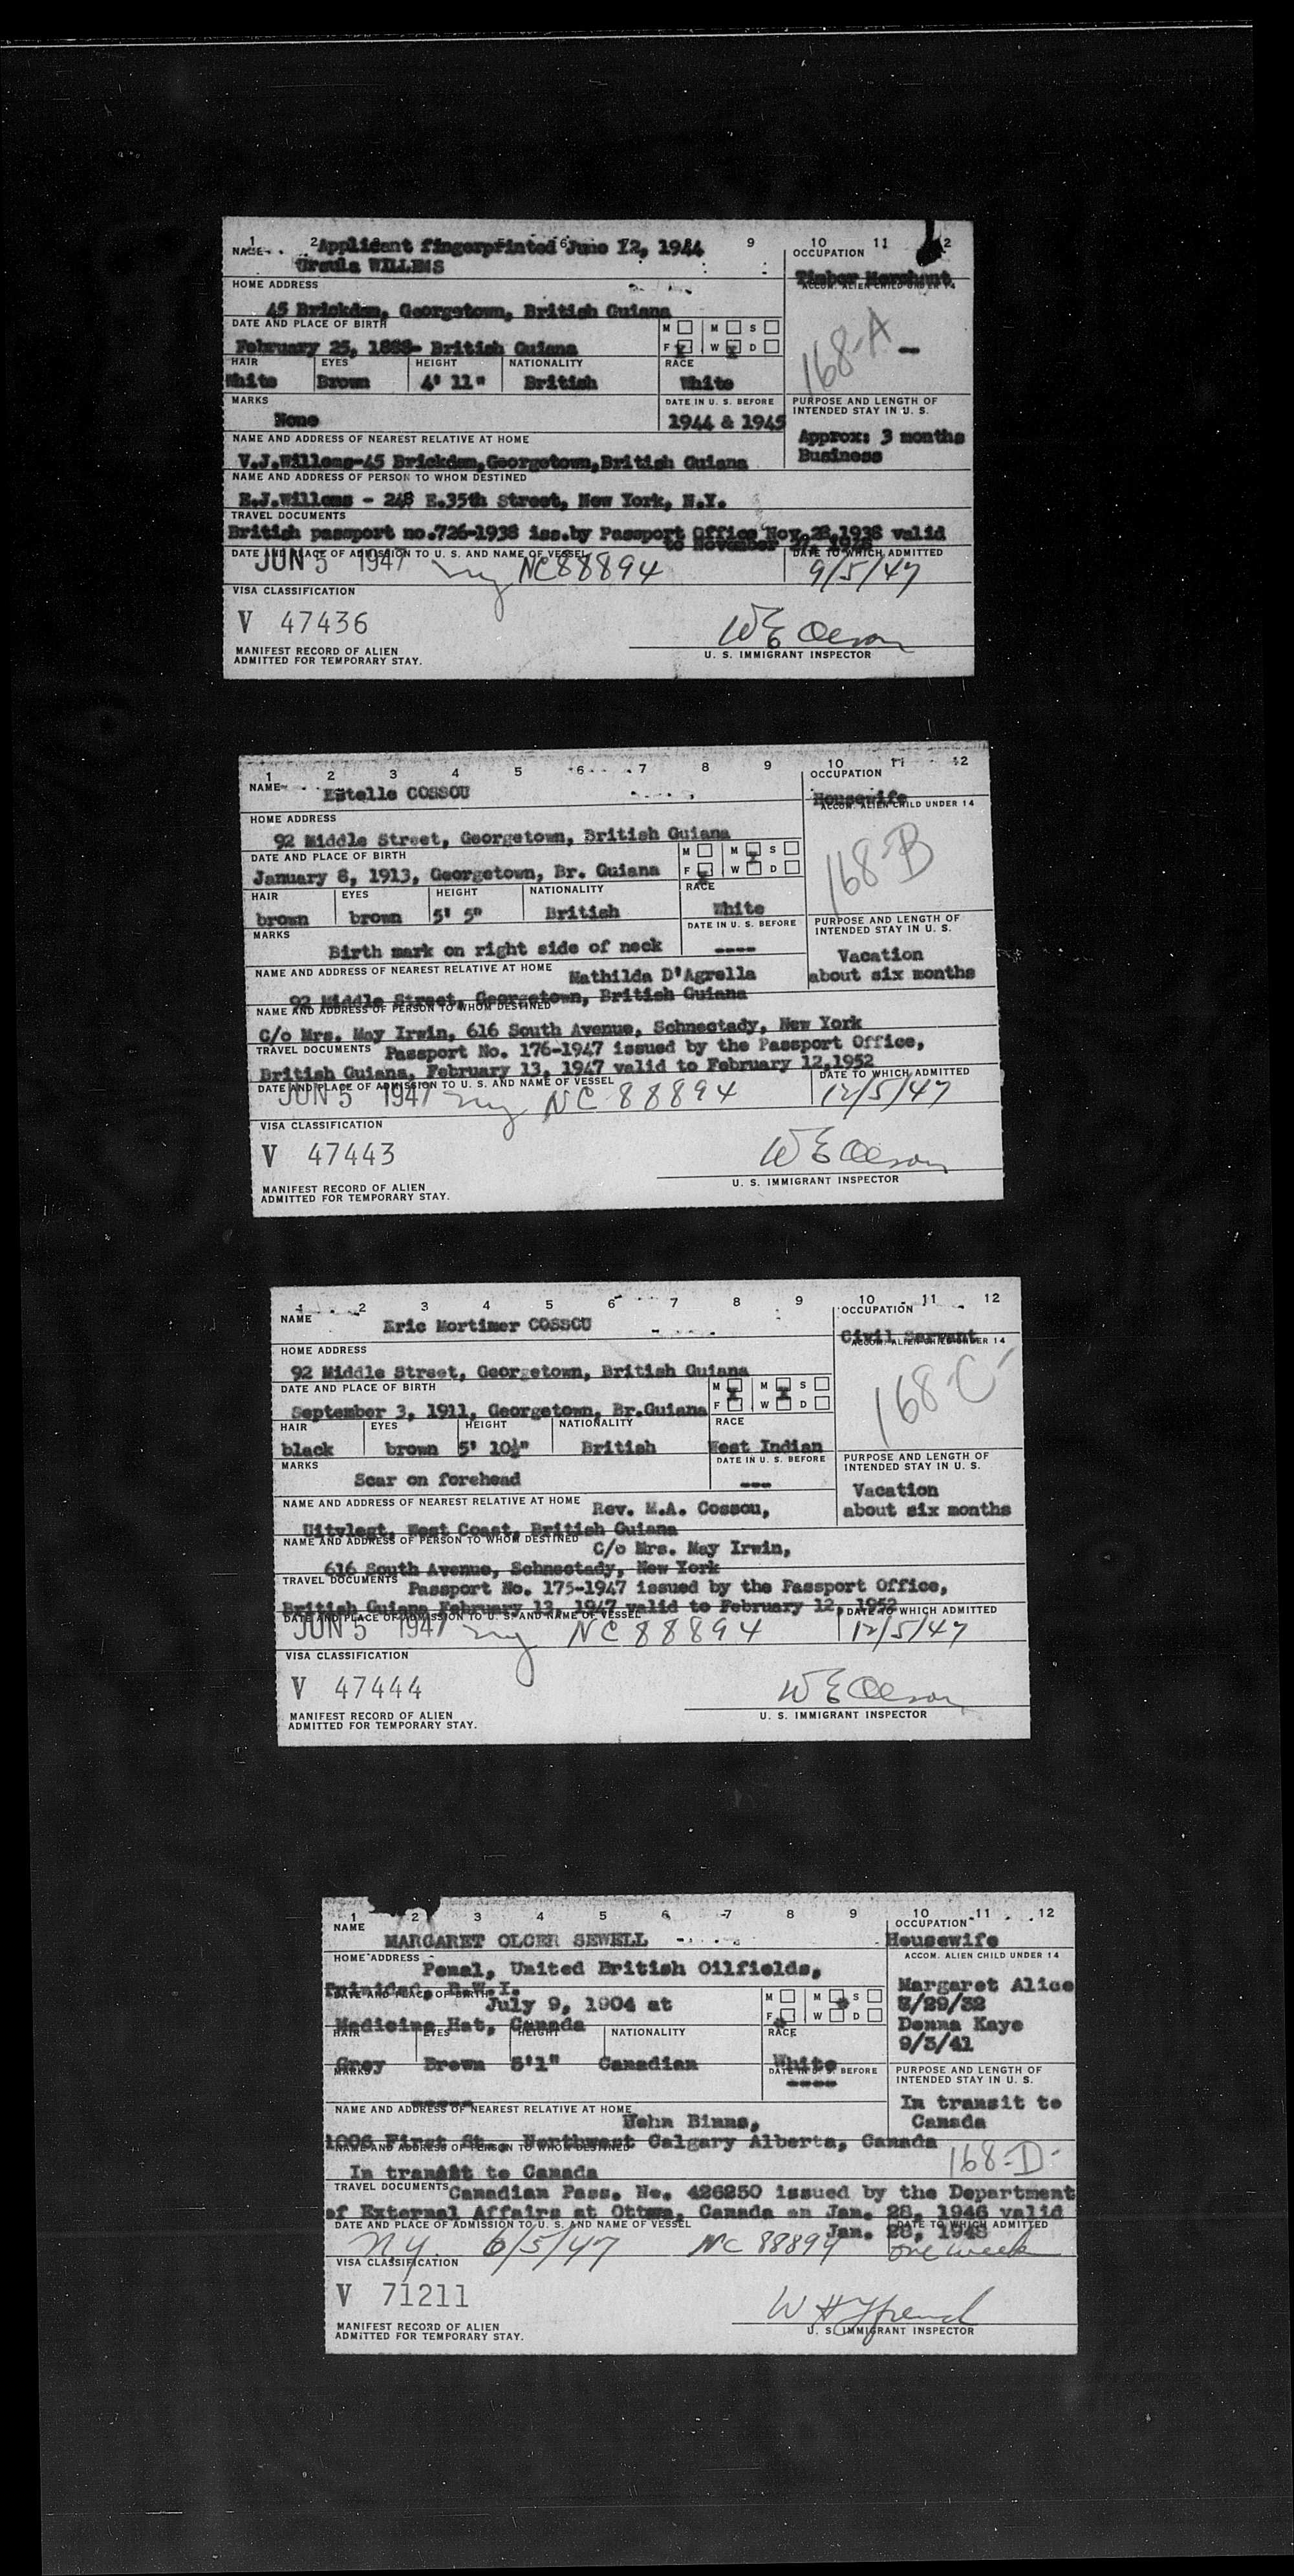 1 2 6 9 10 11 2
NAME Applicant fingerprinted June 12, 1944 OCCUPATION
Ursula WILLEMS Timber Merchant
HOME ADDRESS ACCOM. ALIEN CHILD UNDER 14
45 Brickdam, Georgetown, British Guiana
DATE AND PLACE OF BIRTH M M S
February 25, 1888- British Guiana F X W X D
168-A
HAIR EYES HEIGHT NATIONALITY RACE
White Brown 4' 11" British White
MARKS DATE IN U. S. BEFORE PURPOSE AND LENGTH OF INTENDED STAY IN U. S.
None 1944 & 1945 Approx: 3 months
NAME AND ADDRESS OF NEAREST RELATIVE AT HOME Business
V.J.Willems-45 Brickdam,Georgetown,British Guiana
NAME AND ADDRESS OF PERSON TO WHOM DESTINED
E.J.Willems - 248 E.35th Street, New York, N.Y.
TRAVEL DOCUMENTS
British passport no.726-1938 iss.by Passport Office Nov.28,1938 valid
to November
DATE AND PLACE OF ADMISSION TO U. S. AND NAME OF VESSEL DATE TO WHICH ADMITTED
JUN 5 1947 ny NC 88894 9/5/47
VISA CLASSIFICATION
V 47436 W E Olson
MANIFEST RECORD OF ALIEN U. S. IMMIGRANT INSPECTOR
ADMITTED FOR TEMPORARY STAY.
1 2 3 4 5 6 7 8 9 10 11 12
NAME Estelle COSSOU OCCUPATION
Housewife
HOME ADDRESS ACCOM. ALIEN CHILD UNDER 14
92 Middle Street, Georgetown, British Guiana
DATE AND PLACE OF BIRTH M M X S
January 8, 1913, Georgetown, Br. Guiana F X W D
168-B
HAIR EYES HEIGHT NATIONALITY RACE
brown brown 5' 5" British White
MARKS DATE IN U. S. BEFORE PURPOSE AND LENGTH OF INTENDED STAY IN U. S.
Birth mark on right side of neck ---- Vacation
NAME AND ADDRESS OF NEAREST RELATIVE AT HOME Mathilda D'Agrella about six months
92 Middle Street, Georgetown, British Guiana
NAME AND ADDRESS OF PERSON TO WHOM DESTINED
C/o Mrs. May Irwin, 616 South Avenue, Schnectady, New York
TRAVEL DOCUMENTS Passport No. 176-1947 issued by the Passport Office,
British Guiana, February 13, 1947 valid to February 12,1952
DATE AND PLACE OF ADMISSION TO U. S. AND NAME OF VESSEL DATE TO WHICH ADMITTED
JUN 5 1947 ny NC 88894 12/5/47
VISA CLASSIFICATION
V 47443 W E Olson
MANIFEST RECORD OF ALIEN U. S. IMMIGRANT INSPECTOR
ADMITTED FOR TEMPORARY STAY.
1 2 3 4 5 6 7 8 9 10 11 12
NAME Eric Mortimer COSSOU OCCUPATION
Civil Servant
HOME ADDRESS ACCOM. ALIEN CHILD UNDER 14
92 Middle Street, Georgetown, British Guiana
DATE AND PLACE OF BIRTH M X M X S
September 3, 1911, Georgetown, Br.Guiana F W D
168-C
HAIR EYES HEIGHT NATIONALITY RACE
black brown 5' 10½" British West Indian
MARKS DATE IN U. S. BEFORE PURPOSE AND LENGTH OF INTENDED STAY IN U. S.
Scar on forehead --- Vacation
NAME AND ADDRESS OF NEAREST RELATIVE AT HOME Rev. M.A. Cossou, about six months
Uitvlegt, West Coast, British Guiana
NAME AND ADDRESS OF PERSON TO WHOM DESTINED C/o Mrs. May Irwin,
616 South Avenue, Schnectady, New York
TRAVEL DOCUMENTS Passport No. 175-1947 issued by the Passport Office,
British Guiana February 13, 1947 valid to February 12, 1952
DATE AND PLACE OF ADMISSION TO U. S. AND NAME OF VESSEL DATE TO WHICH ADMITTED
JUN 5 1947 ny NC 88894 12/5/47
VISA CLASSIFICATION
V 47444 W E Olson
MANIFEST RECORD OF ALIEN U. S. IMMIGRANT INSPECTOR
ADMITTED FOR TEMPORARY STAY.
1 2 3 4 5 6 7 8 9 10 11 12
NAME MARGARET OLGER SEWELL OCCUPATION
Housewife
HOME ADDRESS Penal, United British Oilfields, ACCOM. ALIEN CHILD UNDER 14
Trinidad, B.W.I. Margaret Alice
DATE AND PLACE OF BIRTH July 9, 1904 at M M S /29/32
Medicine Hat, Canada F W D Donna Kaye
9/3/41
HAIR EYES HEIGHT NATIONALITY RACE
Grey Brown 5'1" Canadian White
MARKS DATE IN U. S. BEFORE PURPOSE AND LENGTH OF INTENDED STAY IN U. S.
----- ---- In transit to
NAME AND ADDRESS OF NEAREST RELATIVE AT HOME Binns, Canada
1006 First St. Northwest Calgary Alberta, Canada
NAME AND ADDRESS OF PERSON TO WHOM DESTINED 168-D
In transit to Canada
TRAVEL DOCUMENTS Canadian Pass. No. 426250 issued by the Department
of External Affairs at Ottawa, Canada on Jan. 28, 1946 valid
Jan. 28, 1948
DATE AND PLACE OF ADMISSION TO U. S. AND NAME OF VESSEL DATE TO WHICH ADMITTED
N.Y. 6/5/47 NC 88894 one week
VISA CLASSIFICATION
V 71211
MANIFEST RECORD OF ALIEN U. S. IMMIGRANT INSPECTOR
ADMITTED FOR TEMPORARY STAY.